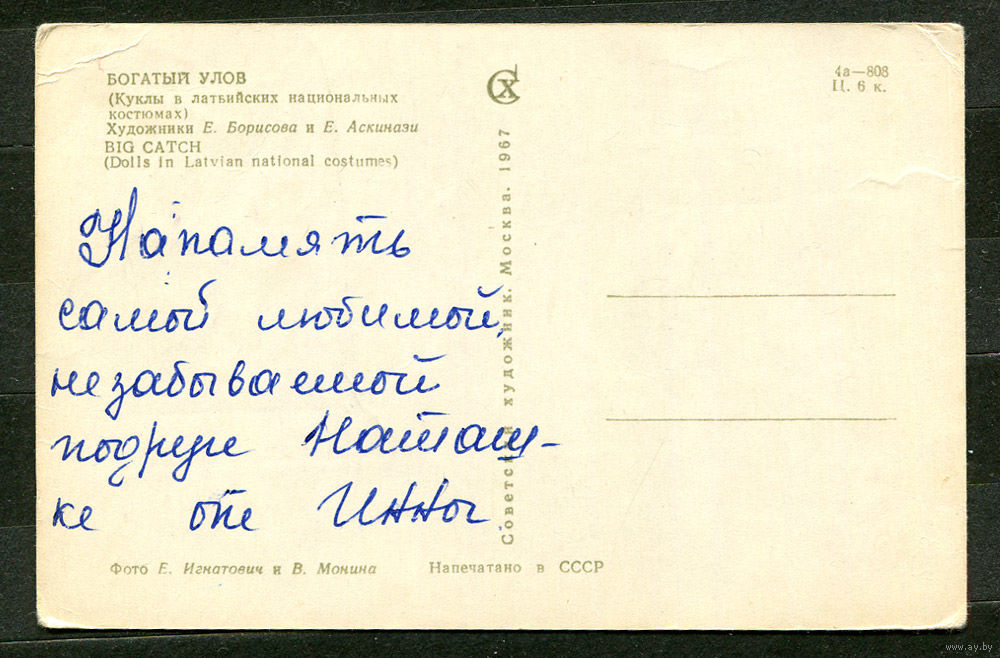 БОГАТЫЙ УЛОВ
(Куклы в латвийских национальных
костюмах)
Художники Е. Борисова и Е. Аскинази
BIG CATCH
(Dolls in Latvian national costumes)
СХ
4а—808
Ц. 6 к.
На память
самой любимой,
незабываемой
подруге Наташ-
ке от Инны
Советский художник. Москва. 1967
Фото Е. Игнатович и В. Монина
Напечатано в СССР
www.ay.by